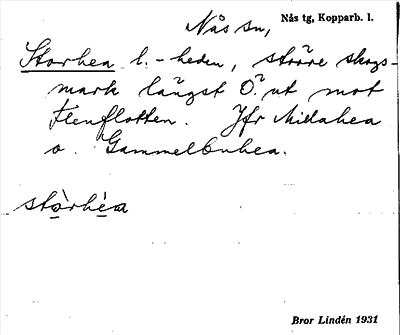 Nås sn, Nås tg, Kopparb. l.
Storhea l. -heden, större skogs-
mark längst Ö. ut mot
Flenflotten. Jfr Millahea
o. Gammelbuhea.
stòrhéa
Bror Lindén 1931